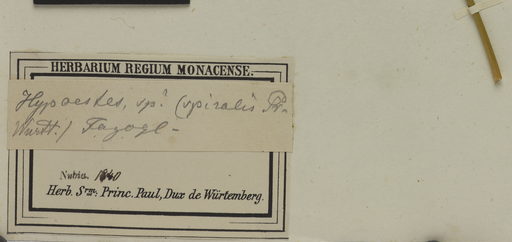 HERBARIUM REGIUM MONACENSE.
Hypoestes, sp? (spiralis Pr.
Württ.) Fazogl -
Nubia. 1840
Herb. Srm: Princ. Paul, Dux de Würtemberg.